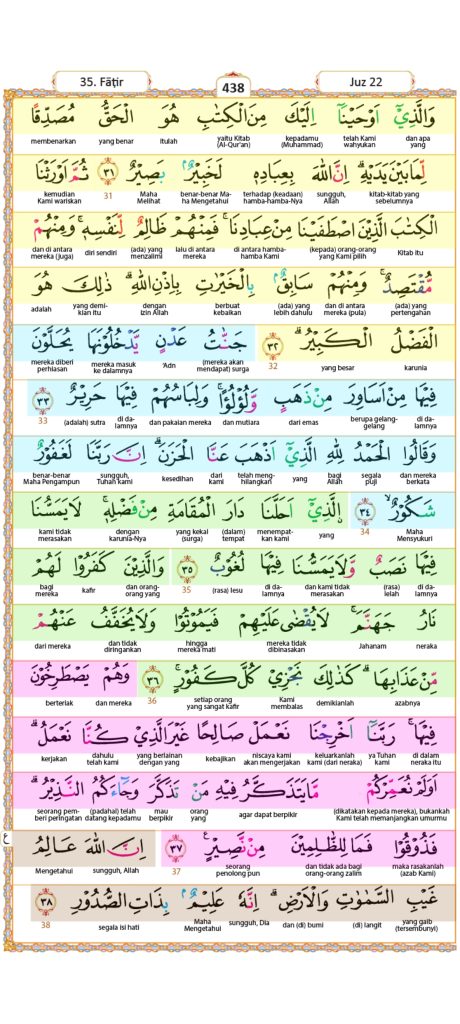 35. Fāṭir
438
Juz 22
وَالَّذِيْٓ اَوْحَيْنَآ اِلَيْكَ مِنَ الْكِتٰبِ هُوَ الْحَقُّ مُصَدِّقًا
dan apa yang telah Kami wahyukan kepadamu (Muhammad) yaitu Kitab (Al-Qur'an) itulah yang benar membenarkan
لِّمَا بَيْنَ يَدَيْهِۗ اِنَّ اللّٰهَ بِعِبَادِهٖ لَخَبِيْرٌۢ بَصِيْرٌ ٣١ ثُمَّ اَوْرَثْنَا
kitab-kitab yang sebelumnya sungguh, Allah terhadap (keadaan) hamba-hamba-Nya benar-benar Maha Mengetahui Maha Melihat 31 kemudian Kami wariskan
الْكِتٰبَ الَّذِيْنَ اصْطَفَيْنَا مِنْ عِبَادِنَاۚ فَمِنْهُمْ ظَالِمٌ لِّنَفْسِهٖۚ وَمِنْهُمْ
Kitab itu (kepada) orang-orang yang Kami pilih di antara hamba-hamba Kami lalu di antara mereka (ada) yang menzalimi diri sendiri dan di antara mereka (juga)
مُّقْتَصِدٌۚ وَمِنْهُمْ سَابِقٌۢ بِالْخَيْرٰتِ بِاِذْنِ اللّٰهِۗ ذٰلِكَ هُوَ
(ada) yang pertengahan dan di antara mereka (pula) (ada) yang lebih dahulu berbuat kebaikan dengan izin Allah yang demikian itu adalah
الْفَضْلُ الْكَبِيْرُۗ ٣٢ جَنّٰتُ عَدْنٍ يَّدْخُلُوْنَهَا يُحَلَّوْنَ
karunia yang besar 32 (mereka akan mendapat) surga 'Adn mereka masuk ke dalamnya mereka diberi perhiasan
فِيْهَا مِنْ اَسَاوِرَ مِنْ ذَهَبٍ وَّلُؤْلُؤًاۚ وَلِبَاسُهُمْ فِيْهَا حَرِيْرٌ ٣٣
di dalamnya berupa gelang-gelang dari emas dan mutiara dan pakaian mereka di dalamnya (adalah) sutra 33
وَقَالُوا الْحَمْدُ لِلّٰهِ الَّذِيْٓ اَذْهَبَ عَنَّا الْحَزَنَۗ اِنَّ رَبَّنَا لَغَفُوْرٌ
dan mereka berkata segala puji bagi Allah yang telah menghilangkan dari kami kesedihan sungguh, Tuhan kami benar-benar Maha Pengampun
شَكُوْرٌۙ ٣٤ ۨالَّذِيْٓ اَحَلَّنَا دَارَ الْمُقَامَةِ مِنْ فَضْلِهٖۚ لَا يَمَسُّنَا
Maha Mensyukuri 34 yang menempatkan kami (dalam) tempat yang kekal (surga) dengan karunia-Nya kami tidak merasakan
فِيْهَا نَصَبٌ وَّلَا يَمَسُّنَا فِيْهَا لُغُوْبٌ ٣٥ وَالَّذِيْنَ كَفَرُوْا لَهُمْ
di dalamnya (rasa) lelah dan kami tidak merasakan di dalamnya (rasa) lesu 35 dan orang-orang yang kafir bagi mereka
نَارُ جَهَنَّمَۚ لَا يُقْضٰى عَلَيْهِمْ فَيَمُوْتُوْا وَلَا يُخَفَّفُ عَنْهُمْ
neraka Jahanam mereka tidak dibinasakan hingga mereka mati dan tidak diringankan dari mereka
مِّنْ عَذَابِهَاۗ كَذٰلِكَ نَجْزِيْ كُلَّ كَفُوْرٍۚ ٣٦ وَهُمْ يَصْطَرِخُوْنَ
azabnya demikianlah Kami membalas setiap orang yang sangat kafir 36 dan mereka berteriak
فِيْهَاۚ رَبَّنَآ اَخْرِجْنَا نَعْمَلْ صَالِحًا غَيْرَ الَّذِيْ كُنَّا نَعْمَلُۗ
di dalam neraka itu ya Tuhan kami keluarkanlah kami (dari neraka) niscaya kami akan mengerjakan kebajikan yang berlainan dengan yang dahulu telah kami kerjakan
اَوَلَمْ نُعَمِّرْكُمْ مَّا يَتَذَكَّرُ فِيْهِ مَنْ تَذَكَّرَ وَجَاۤءَكُمُ النَّذِيْرُۗ
(dikatakan kepada mereka), bukankah Kami telah memanjangkan umurmu agar dapat berpikir orang yang mau berpikir (padahal) telah datang kepadamu seorang pemberi peringatan
فَذُوْقُوْا فَمَا لِلظّٰلِمِيْنَ مِنْ نَّصِيْرٍۚ ٣٧ اِنَّ اللّٰهَ عَالِمُ
maka rasakanlah (azab Kami) dan tidak ada bagi orang-orang zalim seorang penolong pun 37 sungguh, Allah Mengetahui
ع
غَيْبِ السَّمٰوٰتِ وَالْاَرْضِۗ اِنَّهٗ عَلِيْمٌۢ بِذَاتِ الصُّدُوْرِ ٣٨
yang gaib (tersembunyi) (di) langit dan (di) bumi sungguh, Dia Maha Mengetahui segala isi hati 38